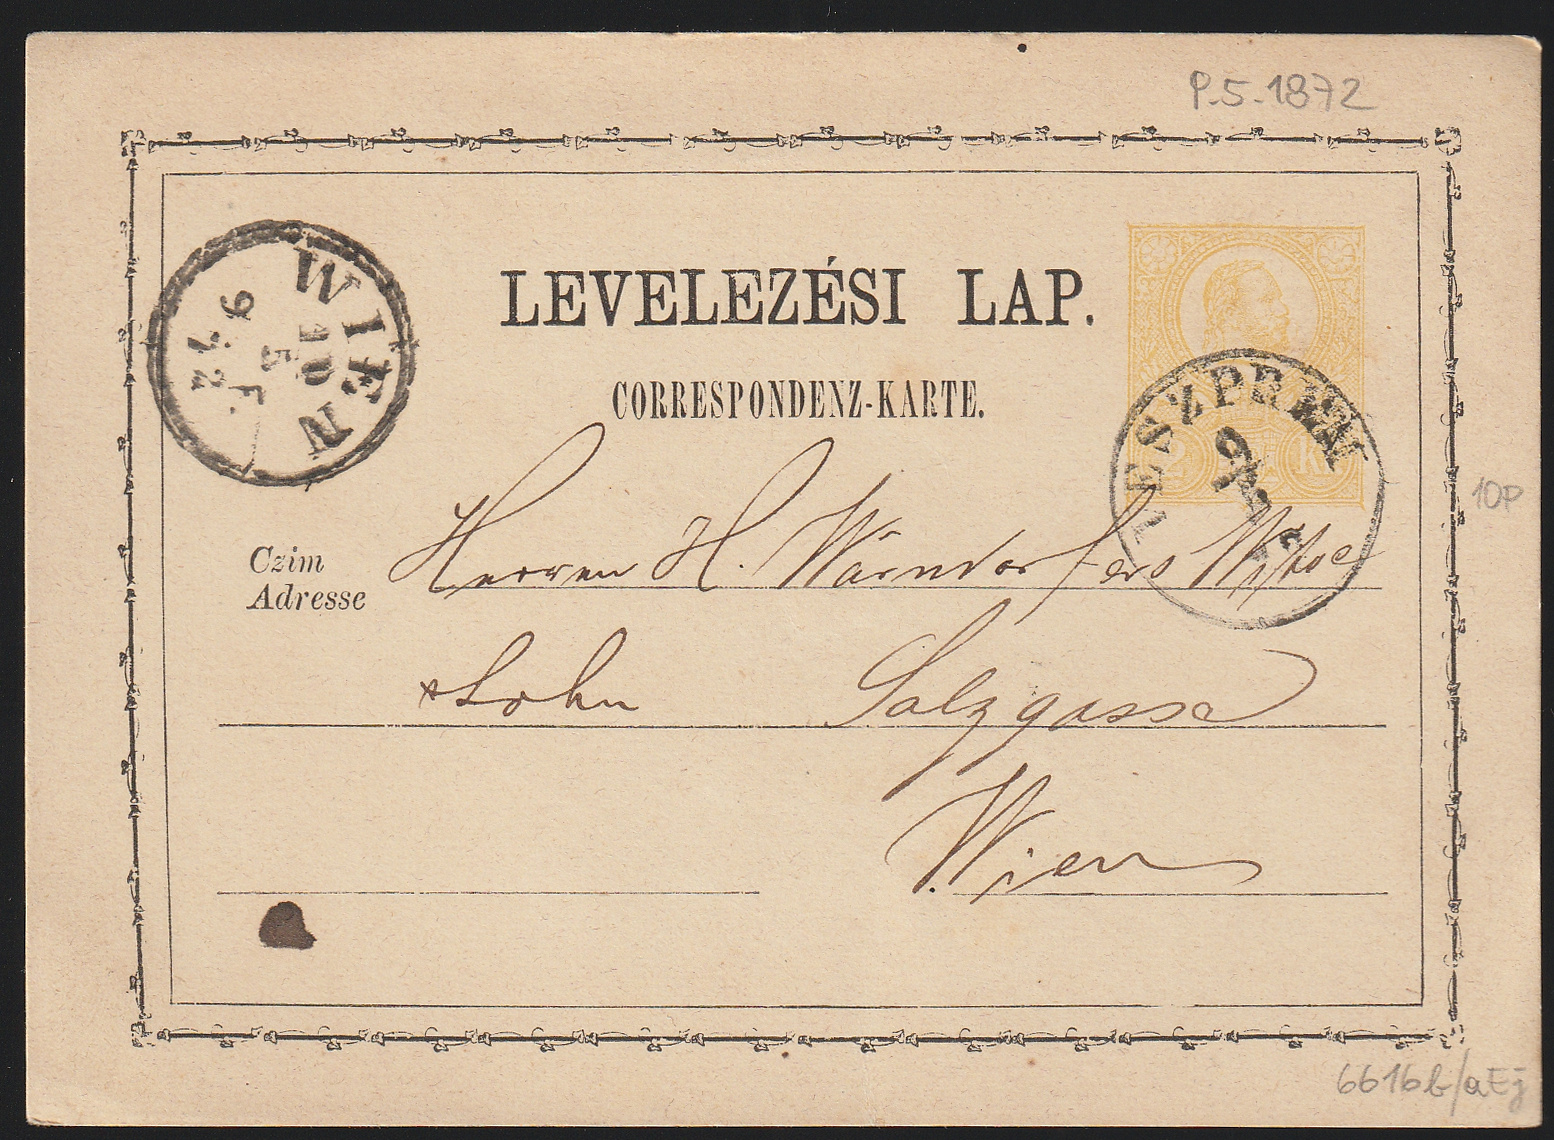 P.5.1872
LEVELEZÉSI LAP.
CORRESPONDENZ-KARTE.
WIEN
10
5
72
VESZPREM
9/5
2 Kr
10P
Czim
Adresse
Herren H. Wärndorfers Wtwe
& Sohn Salzgasse
Wien
6616b/aEj